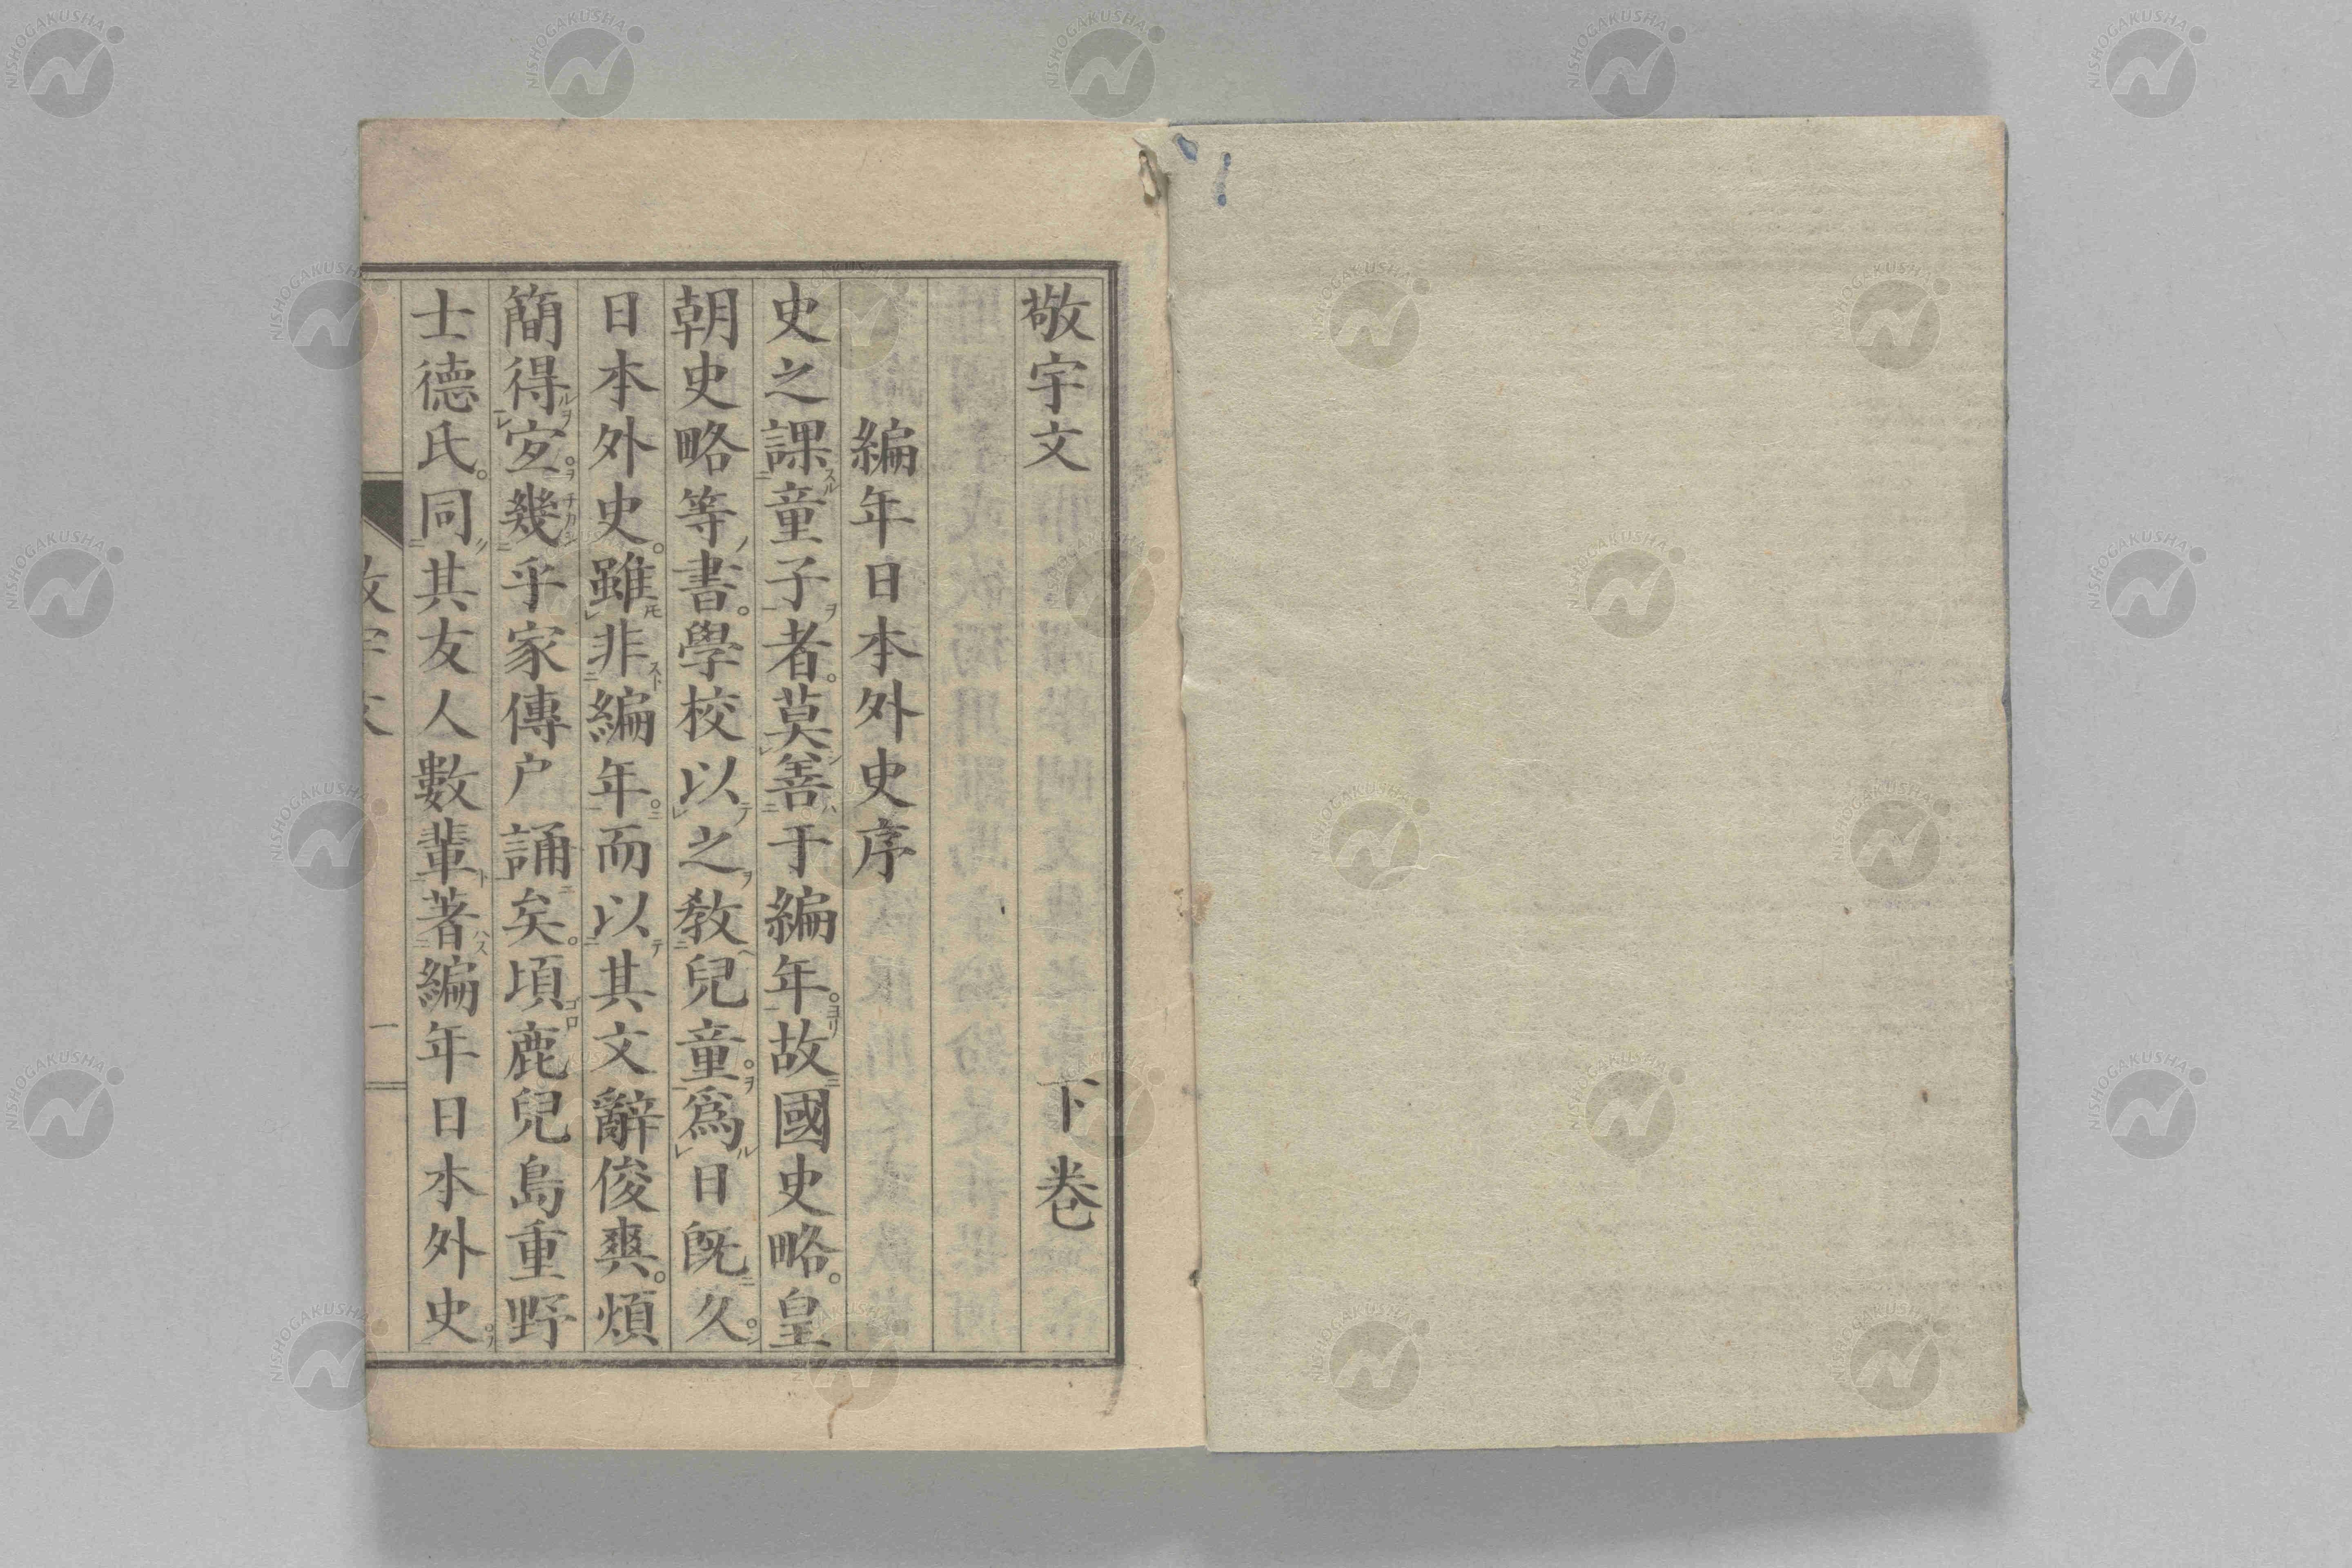 敬宇文　下卷
編年日本外史序
史之課童子者。莫善于編年。故國史略。皇
朝史略等書。學校以之教兒童。爲日既久。
日本外史。雖非編年。而以其文辭俊爽。煩
簡得宜。幾乎家傳户誦矣。頃鹿兒島重野
士德氏。同其友人數輩著編年日本外史。
敬宇文
一
NISHOGAKUSHA